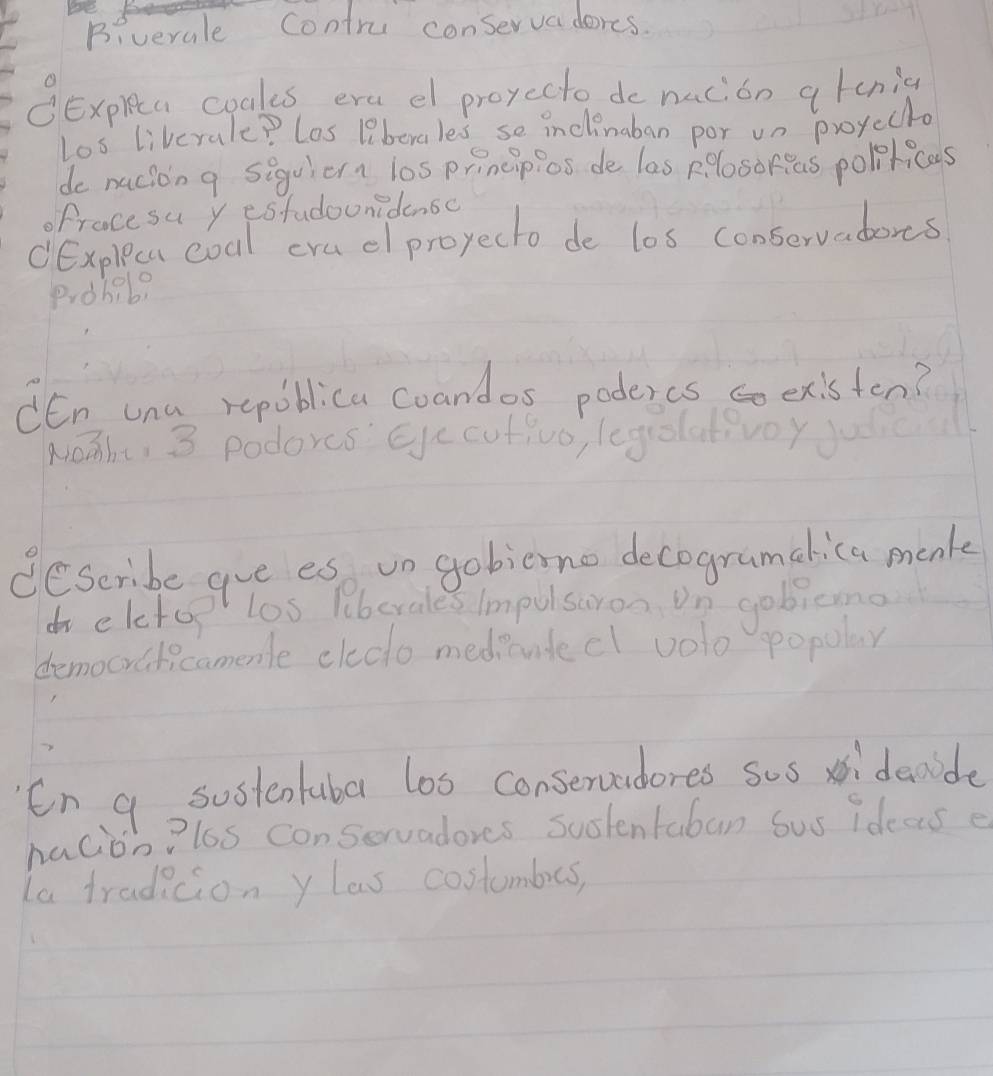 Biverale Contra conservadores.
¿Explica coales era el proyecto de nación q tenia
Los liverale? Los liberales se inclinaban por un proyecto
de nación q siguiera los principios de las filosofias politicas
francesa y estudounidense
¿Explica coal era el proyecto de los conservabores
Prohibi
¿En una repóblica cuandos poderes existen?
3 podores: Ejecutivo, legislativo y judicial.
¿Escribe que es un gobierno decogramatica mente
elkto los liberales Impulsaron un gobierno
democráticamente elecdo mediante el voto popular
En q sustentaba los conservadores sus ideaside
nación? los conservadores sustentaban sus ideas e
la tradición y las costumbres,